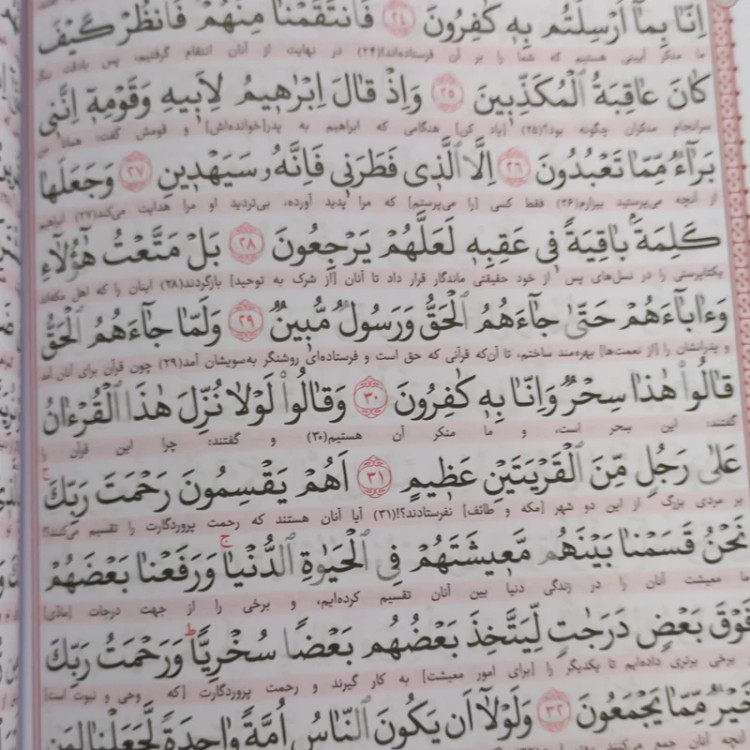 اِنّا بِما اُرْسِلْتُمْ بِهِ كٰفِرُونَ ﴿٢٤﴾ فَانْتَقَمْنا مِنْهُمْ فَانْظُرْ كَيْفَ
ما منکر آیینی هستیم که شما را بر آن فرستاده‌اند!(۲۴) در نهایت از آنان انتقام گرفتیم، پس بادقت بنگر
كانَ عاقِبَةُ الْمُكَذِّبِينَ ﴿٢٥﴾ وَاِذْ قالَ اِبْرٰهِيمُ لِاَبِيهِ وَقَوْمِهٓ اِنَّنِي
سرانجام منکران چگونه بود؟(۲۵) [یاد کن] هنگامی که ابراهیم به پدر[خوانده‌اش] و قومش گفت: همانا من
بَرآءٌ مِمّا تَعْبُدُونَ ﴿٢٦﴾ اِلَّا الَّذِي فَطَرَنِي فَاِنَّهُ سَيَهْدِينِ ﴿٢٧﴾ وَجَعَلَها
از آنچه می‌پرستید بیزارم(۲۶) فقط کسی [را می‌پرستم] که مرا پدید آورده، بی‌تردید او مرا هدایت می‌کند(۲۷) ابراهیم
كَلِمَةً باقِيَةً فِي عَقِبِهِ لَعَلَّهُمْ يَرْجِعُونَ ﴿٢٨﴾ بَلْ مَتَّعْتُ هٰٓؤُلآءِ
یکتاپرستی را در نسل‌های پس از خود حقیقتی ماندگار قرار داد تا آنان [از شرک به توحید] بازگردند(۲۸) اینان را که اهل مکه‌اند
وَءاباءَهُمْ حَتّىٰ جآءَهُمُ الْحَقُّ وَرَسُولٌ مُّبِينٌ ﴿٢٩﴾ وَلَمّا جآءَهُمُ الْحَقُّ
و پدرانشان را [از نعمت‌ها] بهره‌مند ساختم، تا آن‌که قرآنی که حق است و فرستاده‌ای روشنگر به‌سویشان آمد(۲۹) چون قرآن برای آنان آمد
قالُوا هٰذا سِحْرٌ وَاِنّا بِهِ كٰفِرُونَ ﴿٣٠﴾ وَقالُوا لَوْلا نُزِّلَ هٰذَا الْقُرْءانُ
گفتند: این سحر است، و ما منکر آن هستیم(۳۰) و گفتند: چرا این قرآن را
عَلىٰ رَجُلٍ مِّنَ الْقَرْيَتَيْنِ عَظِيمٍ ﴿٣١﴾ اَهُمْ يَقْسِمُونَ رَحْمَتَ رَبِّكَ ج
بر مردی بزرگ از این دو شهر [مکه و طائف] نفرستادند؟!(۳۱) آیا آنان هستند که رحمت پروردگارت را تقسیم می‌کنند؟!
نَحْنُ قَسَمْنا بَيْنَهُمْ مَّعِيشَتَهُمْ فِي الْحَيٰوةِ الدُّنْيا ج وَرَفَعْنا بَعْضَهُمْ
ما معیشت آنان را در زندگی دنیا بین آنان تقسیم کرده‌ایم، و برخی را از جهت درجات [مادی]
فَوْقَ بَعْضٍ دَرَجٰتٍ لِّيَتَّخِذَ بَعْضُهُمْ بَعْضًا سُخْرِيًّا ط وَرَحْمَتُ رَبِّكَ
برخی برتری داده‌ایم تا یکدیگر را [برای امور معیشت] به کار گیرند و رحمت پروردگارت [که وحی و نبوت است]
خَيْرٌ مِّمّا يَجْمَعُونَ ﴿٣٢﴾ وَلَوْلآ اَنْ يَكُونَ النّاسُ اُمَّةً واحِدَةً لَّجَعَلْنا لِمَن
آنچه آنان جمع